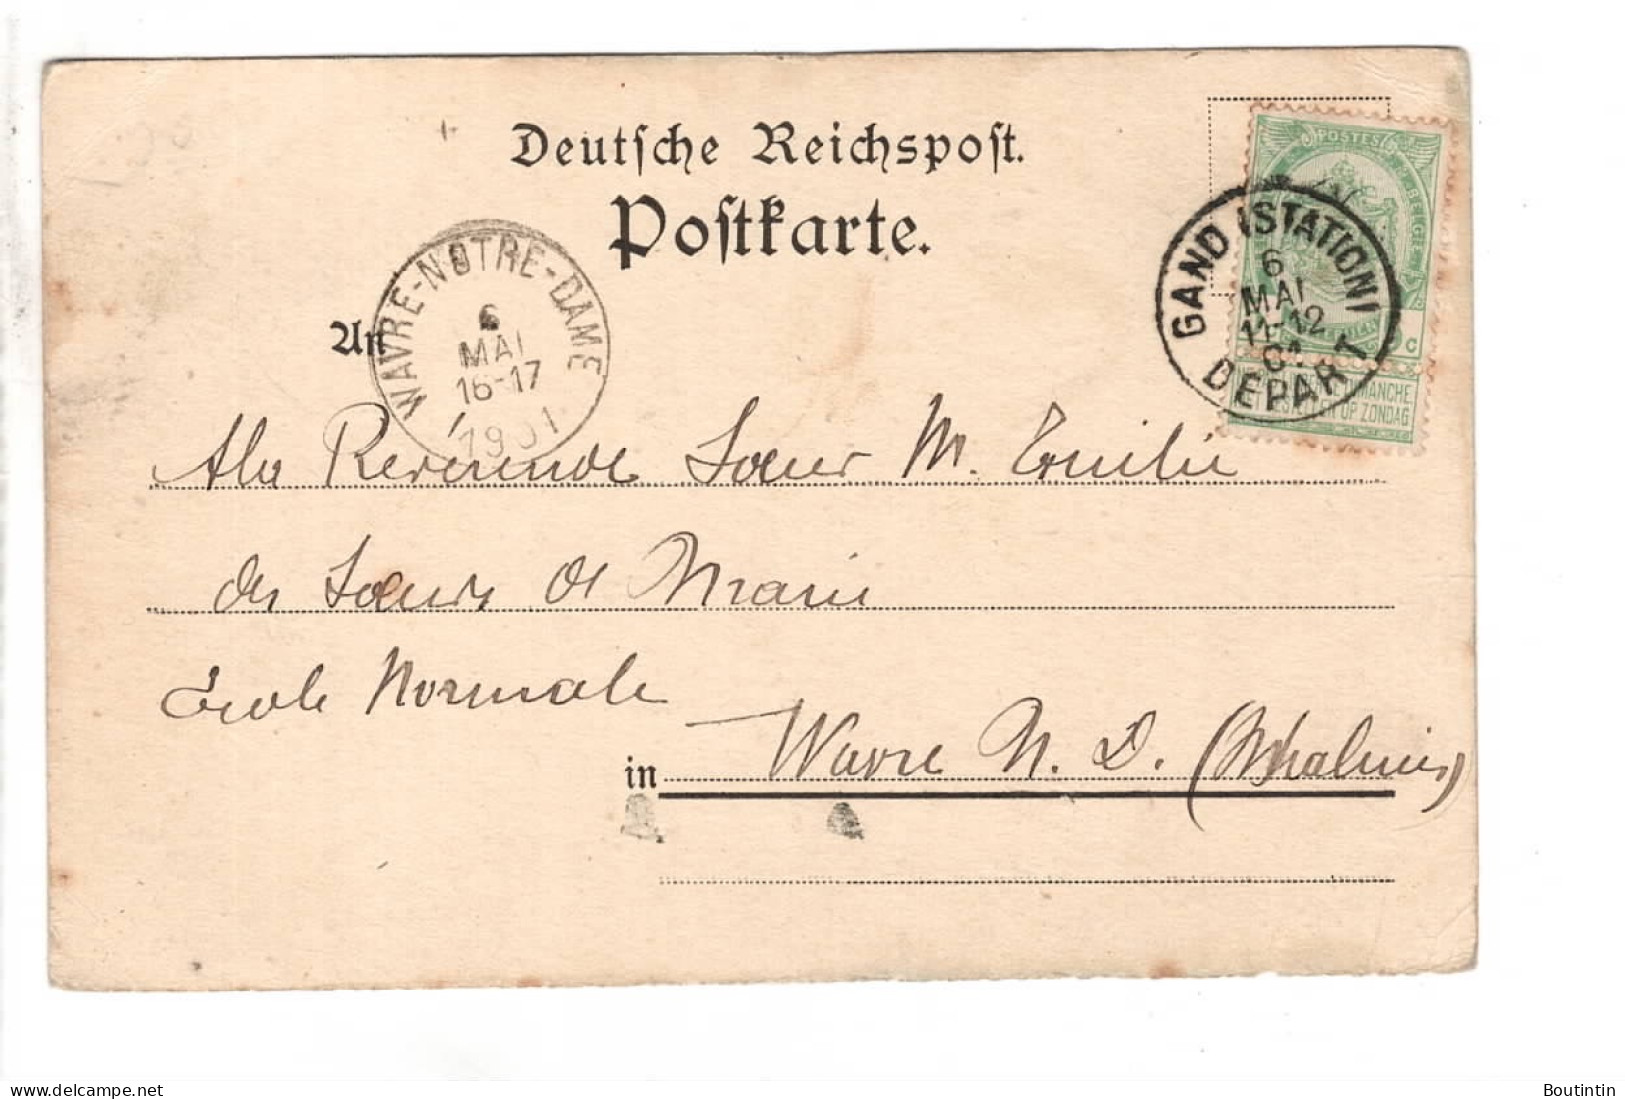 Deutsche Reichspost.
Postkarte.
POSTES
BELGIQUE
GAND (STATION)
6
MAI
11-12
01
DEPART
DIMANCHE
OP ZONDAG
WAVRE-NOTRE-DAME
6
MAI
16-17
1901
An
A la Révérende Sœur M. Emilie
des Sœurs de Marie
Ecole Normale
in Wavre N. D. (Malines)
www.delcampe.net
Boutintin